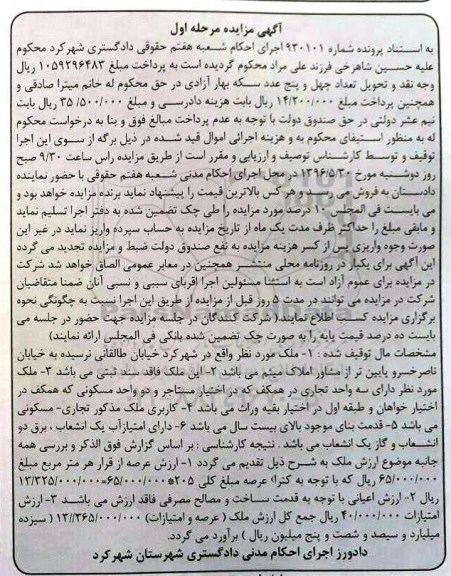 آگهی مزایده مرحله اول
به استناد پرونده شماره ۹۳۰۱۰۱ اجرای احکام شعبه هفتم حقوقی دادگستری شهرکرد محکوم
علیه حسین شاهرخی فرزند علی مراد محکوم گردیده است به پرداخت مبلغ ۱۰۵۹۲۹۶۴۸۳ ریال
وجه نقد و تحویل تعداد چهل و پنج عدد سکه بهار آزادی در حق محکوم له خانم میترا صادقی و
همچنین پرداخت مبلغ ۱۴/۲۰۰/۰۰۰ ریال بابت هزینه دادرسی و مبلغ ۳۵/۵۰۰/۰۰۰ ریال بابت
نیم عشر دولتی در حق صندوق دولت با توجه به عدم پرداخت مبالغ فوق و بنا به درخواست محکوم
له به منظور استیفای محکوم به و هزینه اجرائی اموال قید شده در ذیل برگه از سوی این اجرا
توقیف و توسط کارشناس توصیف و ارزیابی و مقرر است از طریق مزایده راس ساعت ۹/۳۰ صبح
روز دوشنبه مورخ ۱۳۹۶/۵/۳۰ در محل اجرای احکام مدنی شعبه هفتم حقوقی با حضور نماینده
دادستان به فروش می رسد و هر کس بالاترین قیمت را پیشنهاد نماید برنده مزایده خواهد بود و
می بایست فی المجلس ۱۰ درصد مورد مزایده را طی چک تضمین شده به دفتر اجرا تسلیم نماید
و مابقی مبلغ را حداکثر ظرف مدت یک ماه از تاریخ مزایده به حساب سپرده واریز نماید در غیر این
صورت وجوه واریزی پس از کسر هزینه مزایده به نفع صندوق دولت ضبط و مزایده تجدید می گردد
این آگهی برای یکبار در روزنامه محلی منتشر همچنین در معابر عمومی الصاق خواهد شد شرکت
در مزایده برای عموم آزاد است به استثنا مسئولین اجرا اقربای سببی و نسبی آنان ضمنا متقاضیان
شرکت در مزایده می توانند در مدت ۵ روز قبل از مزایده از طریق این اجرا نسبت به چگونگی نحوه
برگزاری مزایده کسب اطلاع نمایند( شرکت کنندگان در جلسه مزایده جهت حضور در جلسه می
بایست ده درصد قیمت پایه را به صورت چک تضمین شده بانکی فی المجلس ارائه نمایند)
مشخصات مال توقیف شده : ۱- ملک مورد نظر واقع در شهرکرد خیابان طالقانی نرسیده به خیابان
ناصرخسرو پایین تر از مشاور املاک میثم می باشد ۲- این ملک فاقد سند ثبتی می باشد ۳- ملک
مورد نظر دارای سه واحد تجاری در همکف که در اختیار مستاجر و دو واحد مسکونی که همکف در
اختیار خواهان و طبقه اول در اختیار بقیه وراث می باشد ۴- کاربری ملک مذکور تجاری- مسکونی
می باشد ۵- قدمت بنای موجود بالای بیست سال می باشد ۶- دارای امتیاز آب یک انشعاب ، برق دو
انشعاب و گاز یک انشعاب می باشد . نتیجه کارشناسی : بر اساس گزارش فوق الذکر و بررسی همه
جانبه موضوع ارزش ملک به شرح ذیل تقدیم می گردد ۱- ارزش عرصه از قرار هر متر مربع مبلغ
۶۵/۰۰۰/۰۰۰ ریال که با توجه به کتراژ عرصه مبلغ کلی ۲۰۵*۶۵/۰۰۰/۰۰۰=۱۳/۳۲۵/۰۰۰/۰۰۰
ریال ۲- ارزش اعیانی با توجه به قدمت ساخت و مصالح مصرفی فاقد ارزش می باشد ۳- ارزش
امتیازات ۴۰/۰۰۰/۰۰۰ ریال جمع کل ارزش ملک ( عرصه و امتیازات) ۱۳//۳۶۵/۰۰۰/۰۰۰ ( سیزده
میلیارد و سیصد و شصت و پنج میلیون ریال ) برآورد می گردد.
دادورز اجرای احکام مدنی دادگستری شهرستان شهرکرد